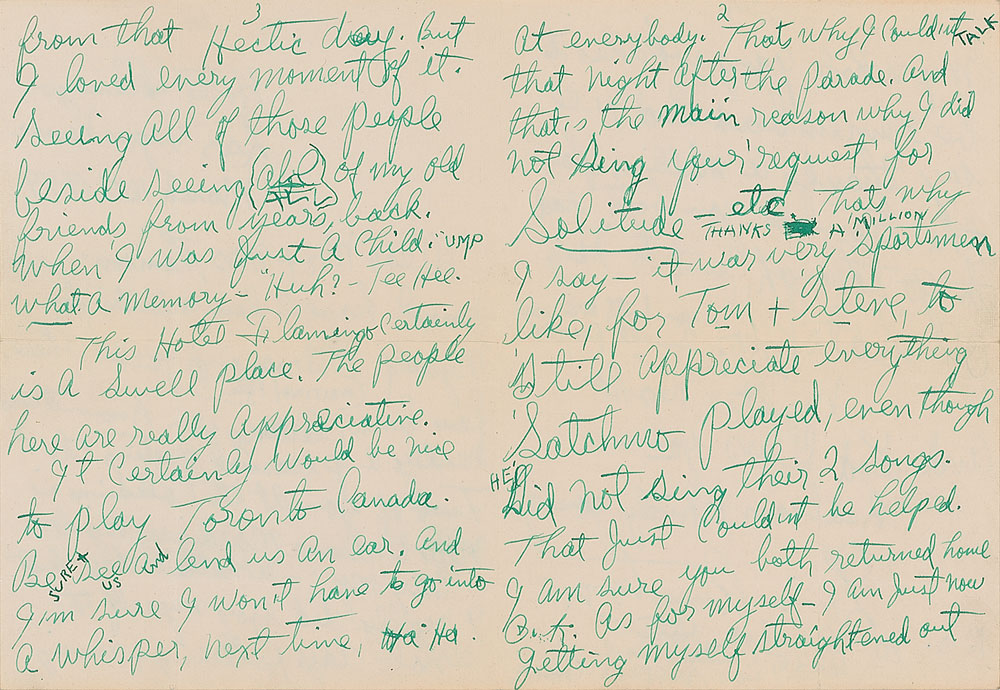 2
At everybody. That's why I Couldn't TALK
that night After the Parade. And
that's the main reason why I did
not sing your 'request' for
Solitude – etc That's why
THANKS A 'MILLION'
I say – it was very Sportsmen
like, for Tom + Steve, to
Still Appreciate everything
Satchmo played, even though
HE' Did not sing their 2 songs.
That Just Couldn't be helped.
I am sure you both returned home
But. As for myself – I am Just now
getting myself straightened out
3
from that Hectic day. But
I loved every moment of it.
Seeing All of those People
beside seeing (ALL) of my old
friends from years, back.
When I was Just A Child." UMP
what A memory – "Huh? – Tee Hee.
This Hotel Flamingo Certainly
is A Swell place. The people
here are really Appreciative.
It Certainly would be nice
to play Toronto Canada.
Be SURE + See US And lend us An ear. And
I'm sure I won't have to go into
A whisper, next time, Ha Ha.